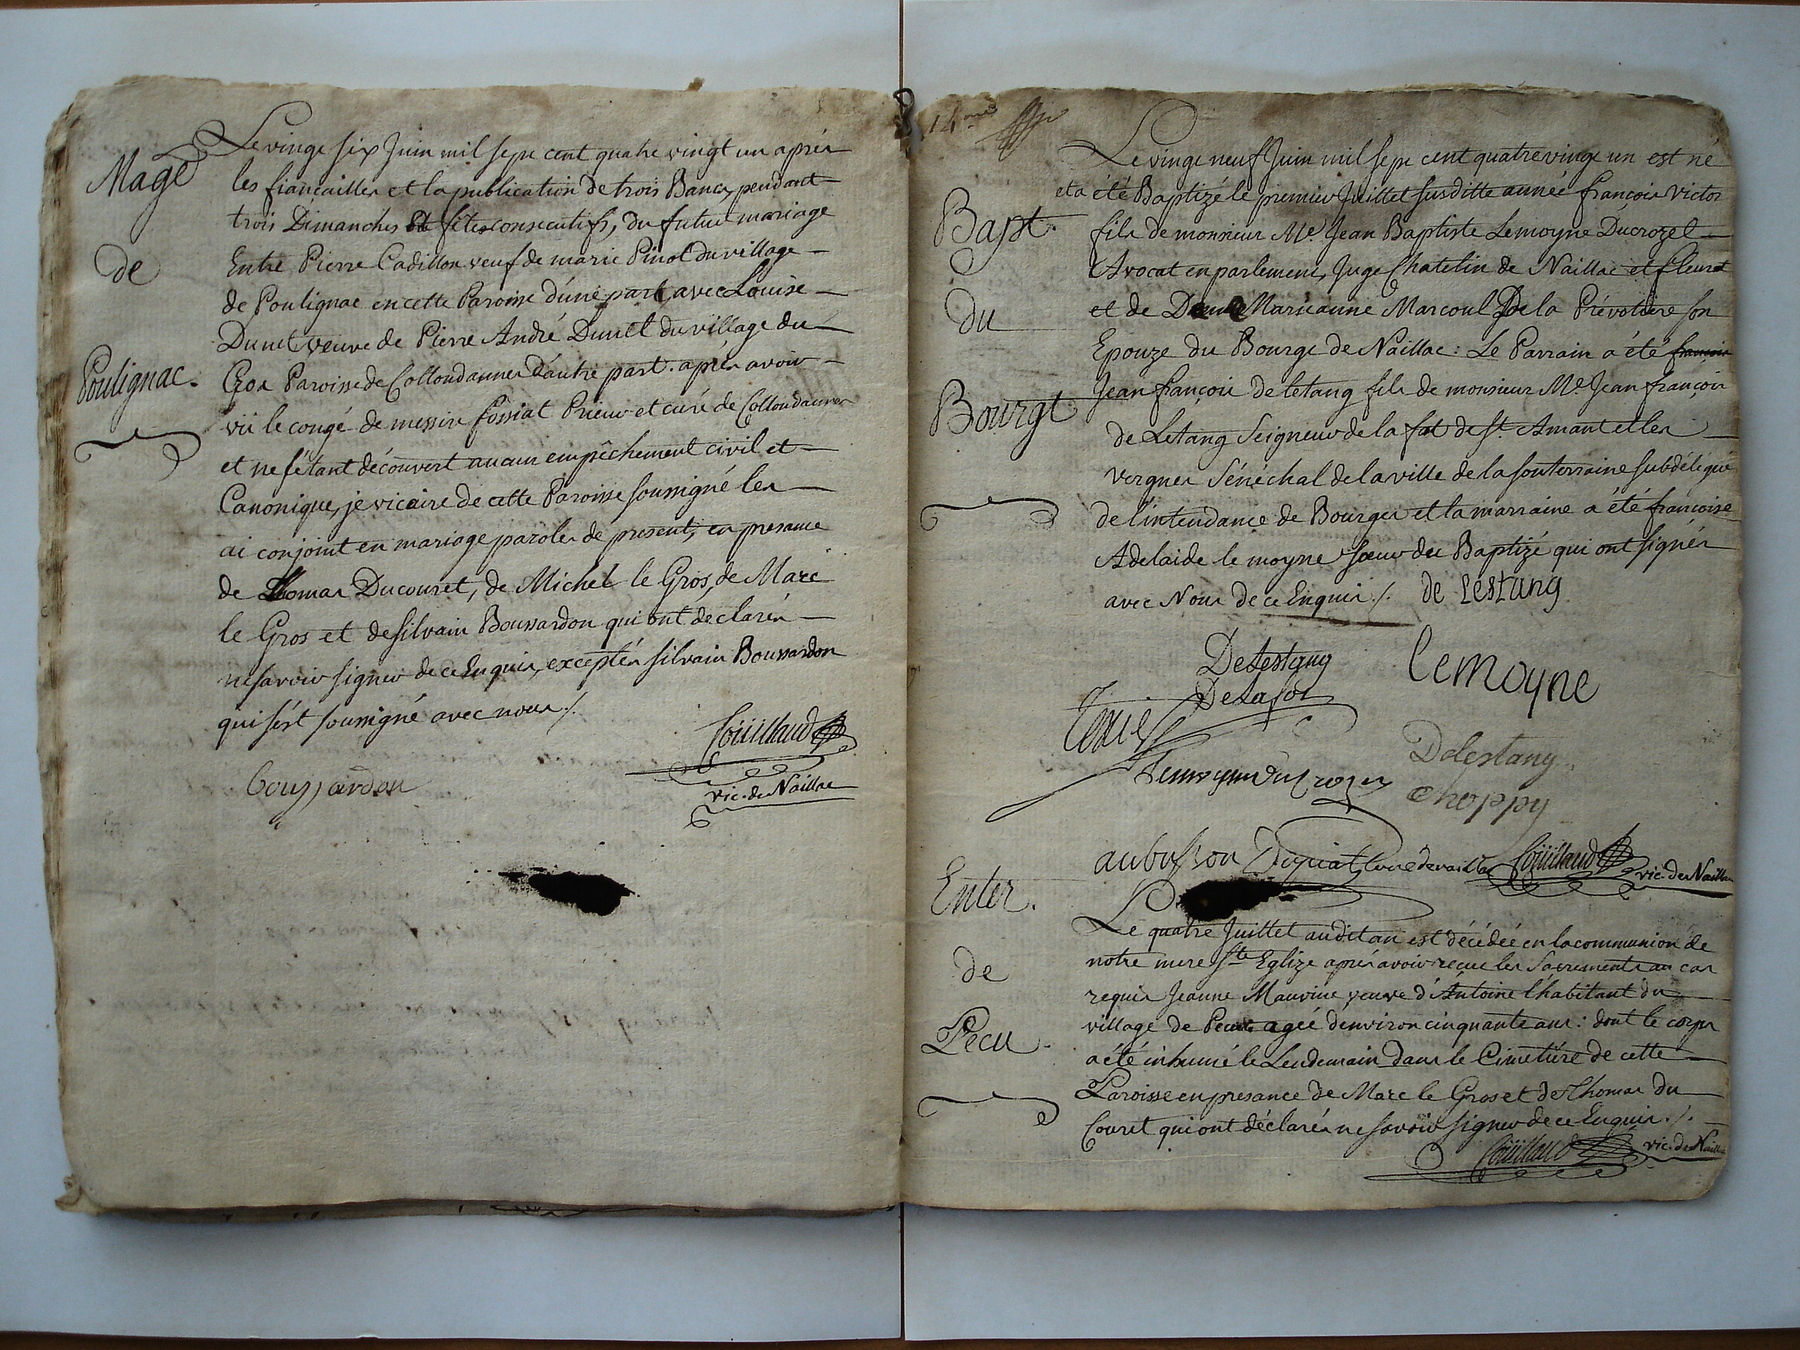 Mage
de
Poulignac.
Le vingt six Juin mil sept cent quatre vingt un après
les fiancailles et la publication de trois Bancs, pendant
trois Dimanches et fêtes consecutifs, du futur mariage
Entre Pierre Cadillon veuf de marie Pinot du village
de Poulignac en cette Paroisse d'une part, avec Louise
Dunet veuve de Pierre André Dunet du village du
Cros Paroisse de Collondannes d'autre part. après avoir
vû le congé de messire fossiat Prieur et curé de Collondannes
et ne s'étant découvert aucun empêchement civil et
Canonique, je vicaire de cette Paroisse soussigné les
ai conjoint en mariage paroles de present, en presance
de Thomas Ducouret, de Michel le Gros, de Marc
le Gros et de silvain Boussardon qui ont declarés
ne savoir signer de ce Enquis, exceptés silvain Boussardon
qui s'est soussigné avec nous ./.
Coüillaud
vic. de Naillac
boussardon
14me
Bapt.
du
Bourgt
Le vingt neuf Juin mil sept cent quatre vingt un est né
et a été Baptizé le premier Juillet susditte année françois victor
fils de monsieur Me. Jean Baptiste Lemoyne Ducrozet
Avocat en parlement, Juge Chatelin de Naillac et fleurat
et de Dame Marieanne Marcoul De la Prévotière son
Epouze du Bourgt de Naillac: Le Parrain a été françois
Jean françois de letang fils de monsieur Me. Jean françois
de Letang Seigneur de la fat de st. Amant et les
vergnes Sénéchal de la ville de la souterraine subdélégué
de l'intendance de Bourges et la marraine a été francoise
Adelaide le moyne soeur du Baptizé qui ont signés
avec Nous de ce Enquis ./. de Lestang
Delestang
Delafat
lemoyne
Lemoyne Ducrozet
Delestang
Choppy
aubusson Dupiat, curé de naillac Coüillaud vic. de Naillac
Enter.
de
Pecu
Le quatre Juillet audit an est décédée en la communion de
notre mere ste Eglize après avoir recue les Sacrements au cas
requis Jeanne Mauvine veuve d'Antoine l'habitant du
village de Pecu agée d'environ cinquante ans: dont le corps
a été inhumé le Lendemain dans le Cimetière de cette
Paroisse en presance de Marc le Gros et de Thomas du
Couret qui ont déclarés ne savoir signer de ce Enquis ./.
Coüillaud vic. de Naillac